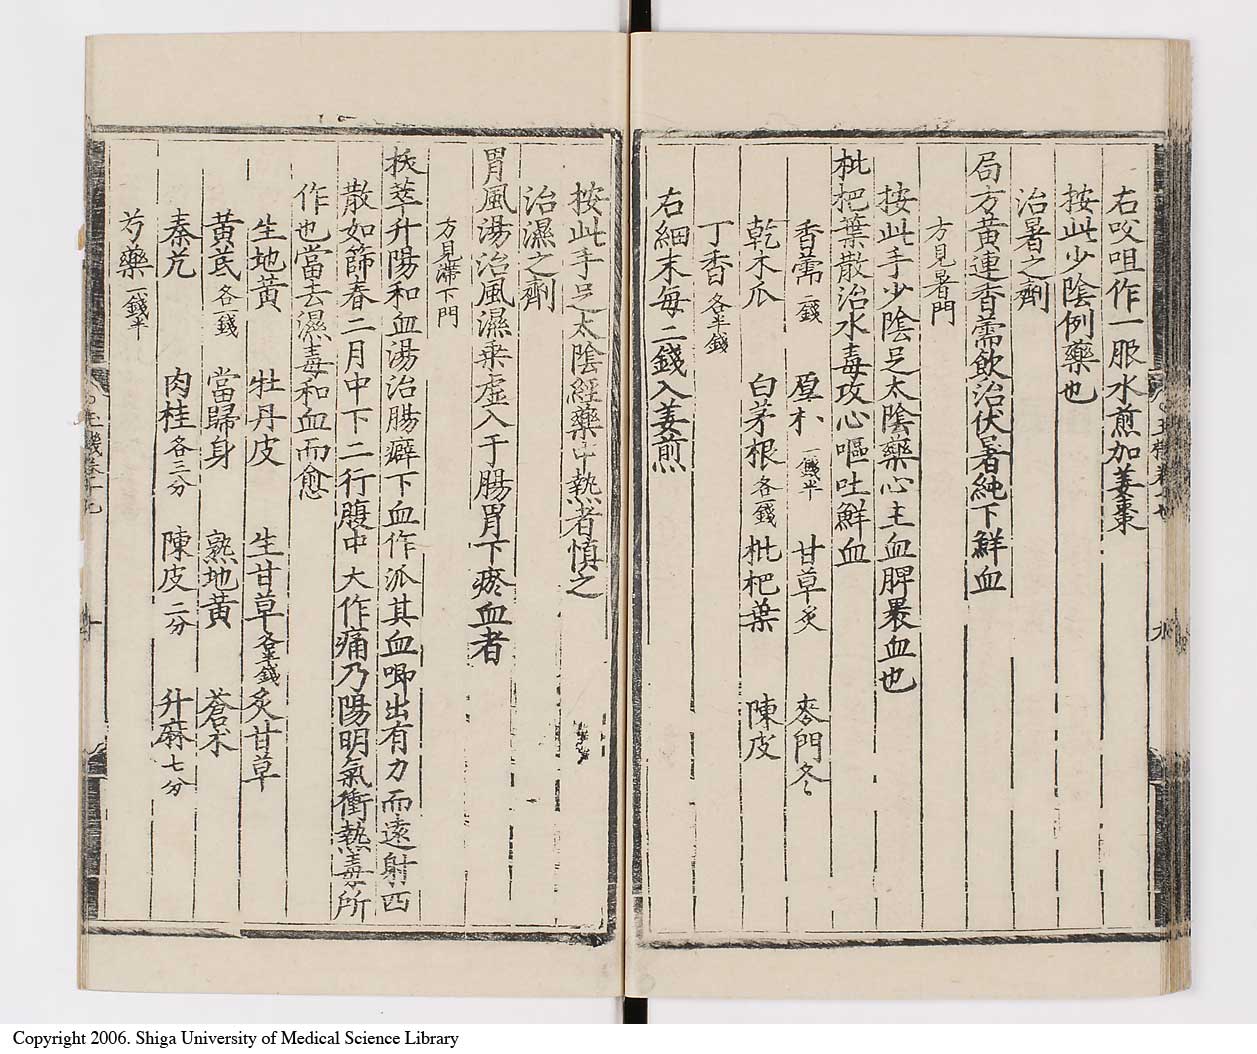 右㕮咀作一服水煎加姜棗
按此少陰例藥也
治暑之劑
局方黄連香薷飲治伏暑純下鮮血
方見暑門
按此手少陰足太陰藥心主血脾褁血也
枇杷葉散治水毒攻心嘔吐鮮血
香薷一錢 厚朴一錢半 甘草炙 麥門冬
乾木瓜 白茅根各一錢 枇杷葉 陳皮
丁香各半錢
右細末每二錢入姜煎
按此手足太陰經藥中熱者慎之
治濕之劑
胃風湯治風濕乘虚入于腸胃下瘀血者
方見滯下門
拔萃升陽和血湯治腸癖下血作泒其血唧出有力而遠射四
散如篩春二月中下二行腹中大作痛乃陽明氣衝熱毒所
作也當去濕毒和血而愈
生地黄 牡丹皮 生甘草各半錢 炙甘草
黄芪各一錢 當歸身 熟地黄 蒼朮
秦艽 肉桂各三分 陳皮二分 升麻七分
芍藥一錢半
Copyright 2006. Shiga University of Medical Science Library